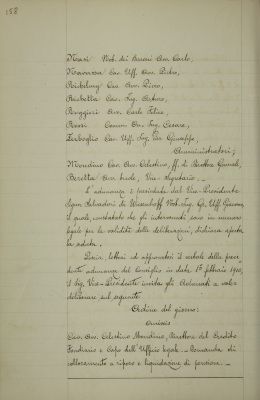 158
Nob. dei Baroni Avv. Carlo,
Navarra Cav. Uff. Avv. Pietro,
Cav. Avv. Piero,
Cav. Ing. Arturo,
Ruggeri Avv. Carlo Felice,
Rossi Comm. Ing. Cesare,
Cav. Uff. Ing. Giuseppe,
Amministratori;
Mondino Cav. Avv. Celestino, ff. di Direttore Generale,
Beretta Avv. Vice-Segretario. —
L'adunanza è presieduta dal Vice-Presidente
Signor Salvadori di Nob. Ing. Gr. Uff. Giovanni,
il quale, constatato che gli intervenuti sono in numero
legale per la validità delle deliberazioni, dichiara aperta
la seduta. —
Previa lettura ed approvazione del verbale della prece
dente adunanza del Consiglio in data 1º febbraio 1910,
il Sig. Vice-Presidente invita gli Adunati a voler
deliberare sul seguente
Ordine del giorno:
Cav. Avv. Celestino Mondino, Direttore del Credito
Fondiario e Capo dell'Ufficio legale. — Domanda di
collocamento a riposo e liquidazione di pensione. —